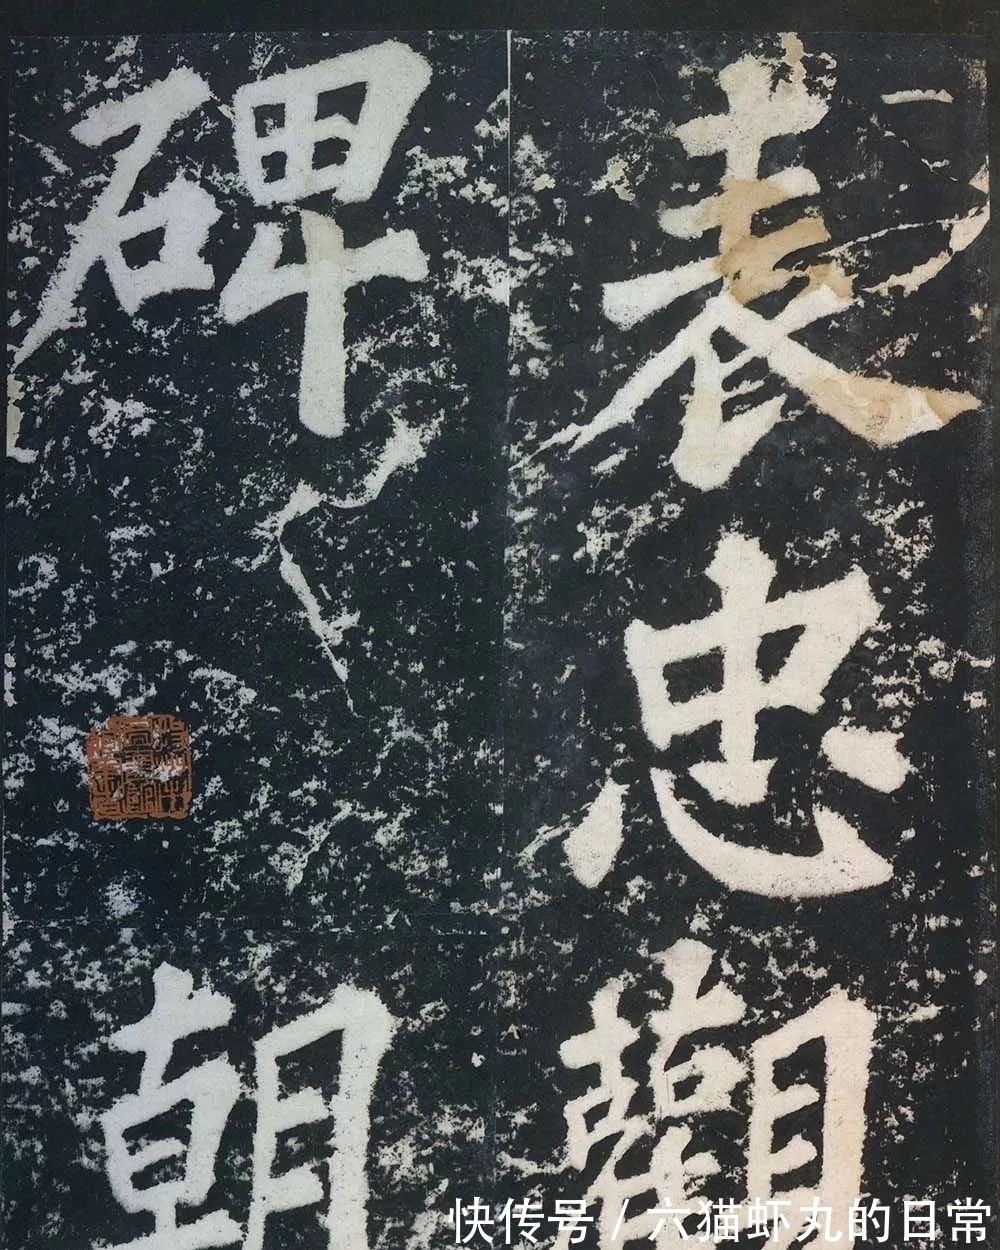 表忠觀
碑
朝
快传号 / 六猫虾丸的日常